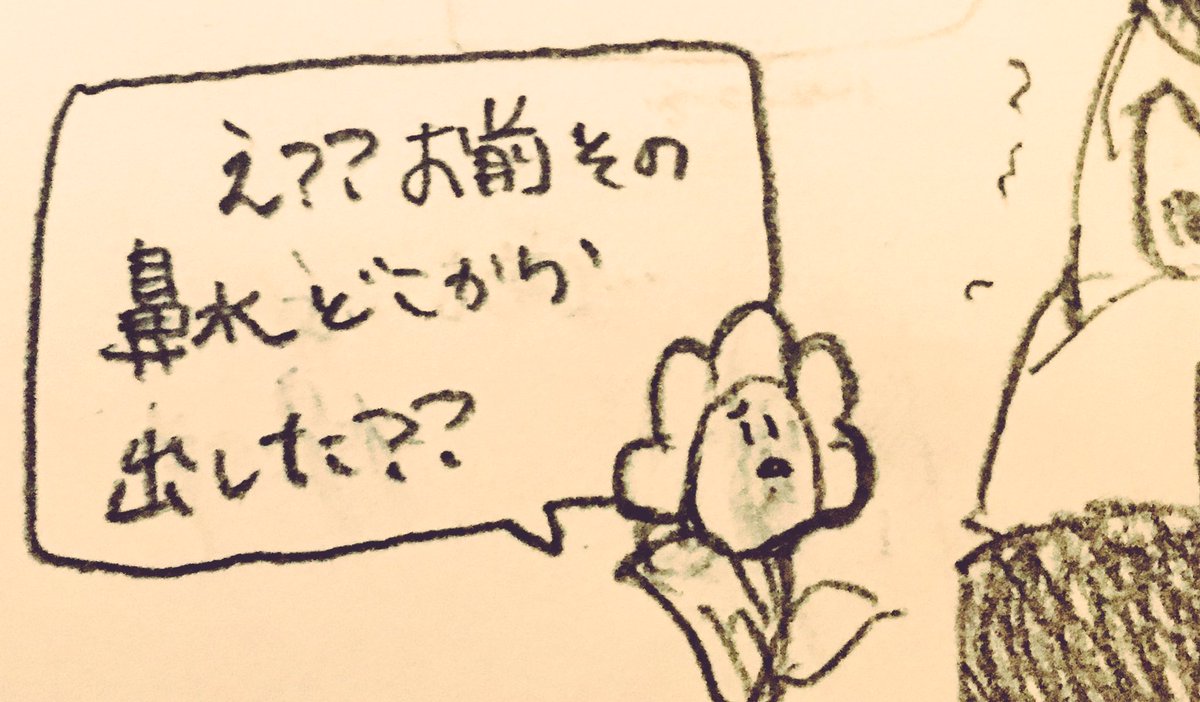 え??お前その
鼻水どこから
出した??